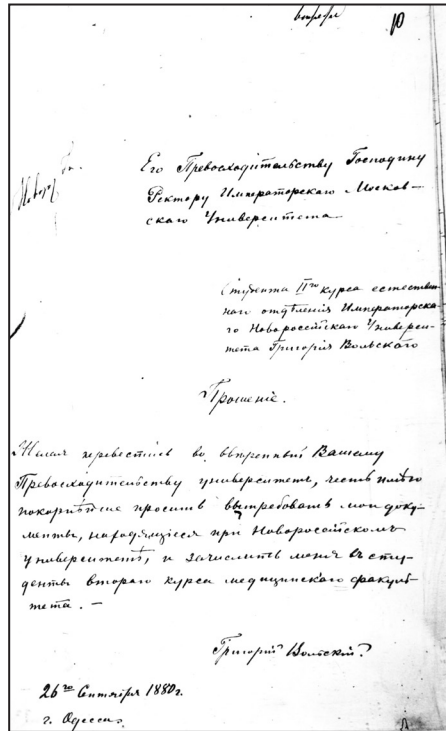 10
Его Превосходительству Господину
Ректору Императорскаго Москов-
скаго Университета
Студента IIго курса естествен-
наго отдѣленія Императорска-
го Новороссійскаго Универси-
тета Григорія Вольскаго
Прошеніе.
Желая перевестись во ввѣренный Вашему
Превосходительству университет, честь имѣю
покорнѣйше просить вытребовать мои доку-
менты, находящіеся при Новороссійскомъ
университетѣ, и зачислить меня въ сту-
денты втораго курса медицинскаго факуль-
тета. —
Григорій Вольскій.
26го Сентября 1880г.
г. Одесса.